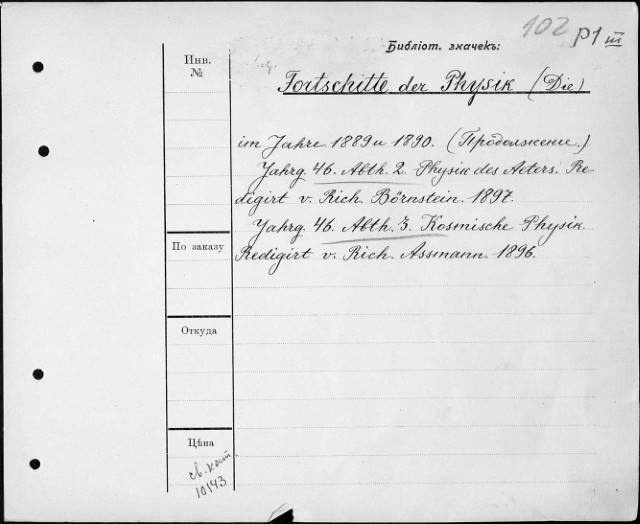 102 P1 III
Библіот. значекъ:
Инв.
№
Fortschitte der Physik (Die)
im Jahre 1889 u 1890. (Продолженіе.)
Jahrg. 46. Abth. 2. Physik des Aeters. Re-
digirt v. Rich. Börnstein. 1897.
Jahrg. 46. Abth. 3. Kosmische Physik
Redigirt v. Rich. Assmann. 1896.
По заказу
Откуда
Цѣна
св. кат.
10143